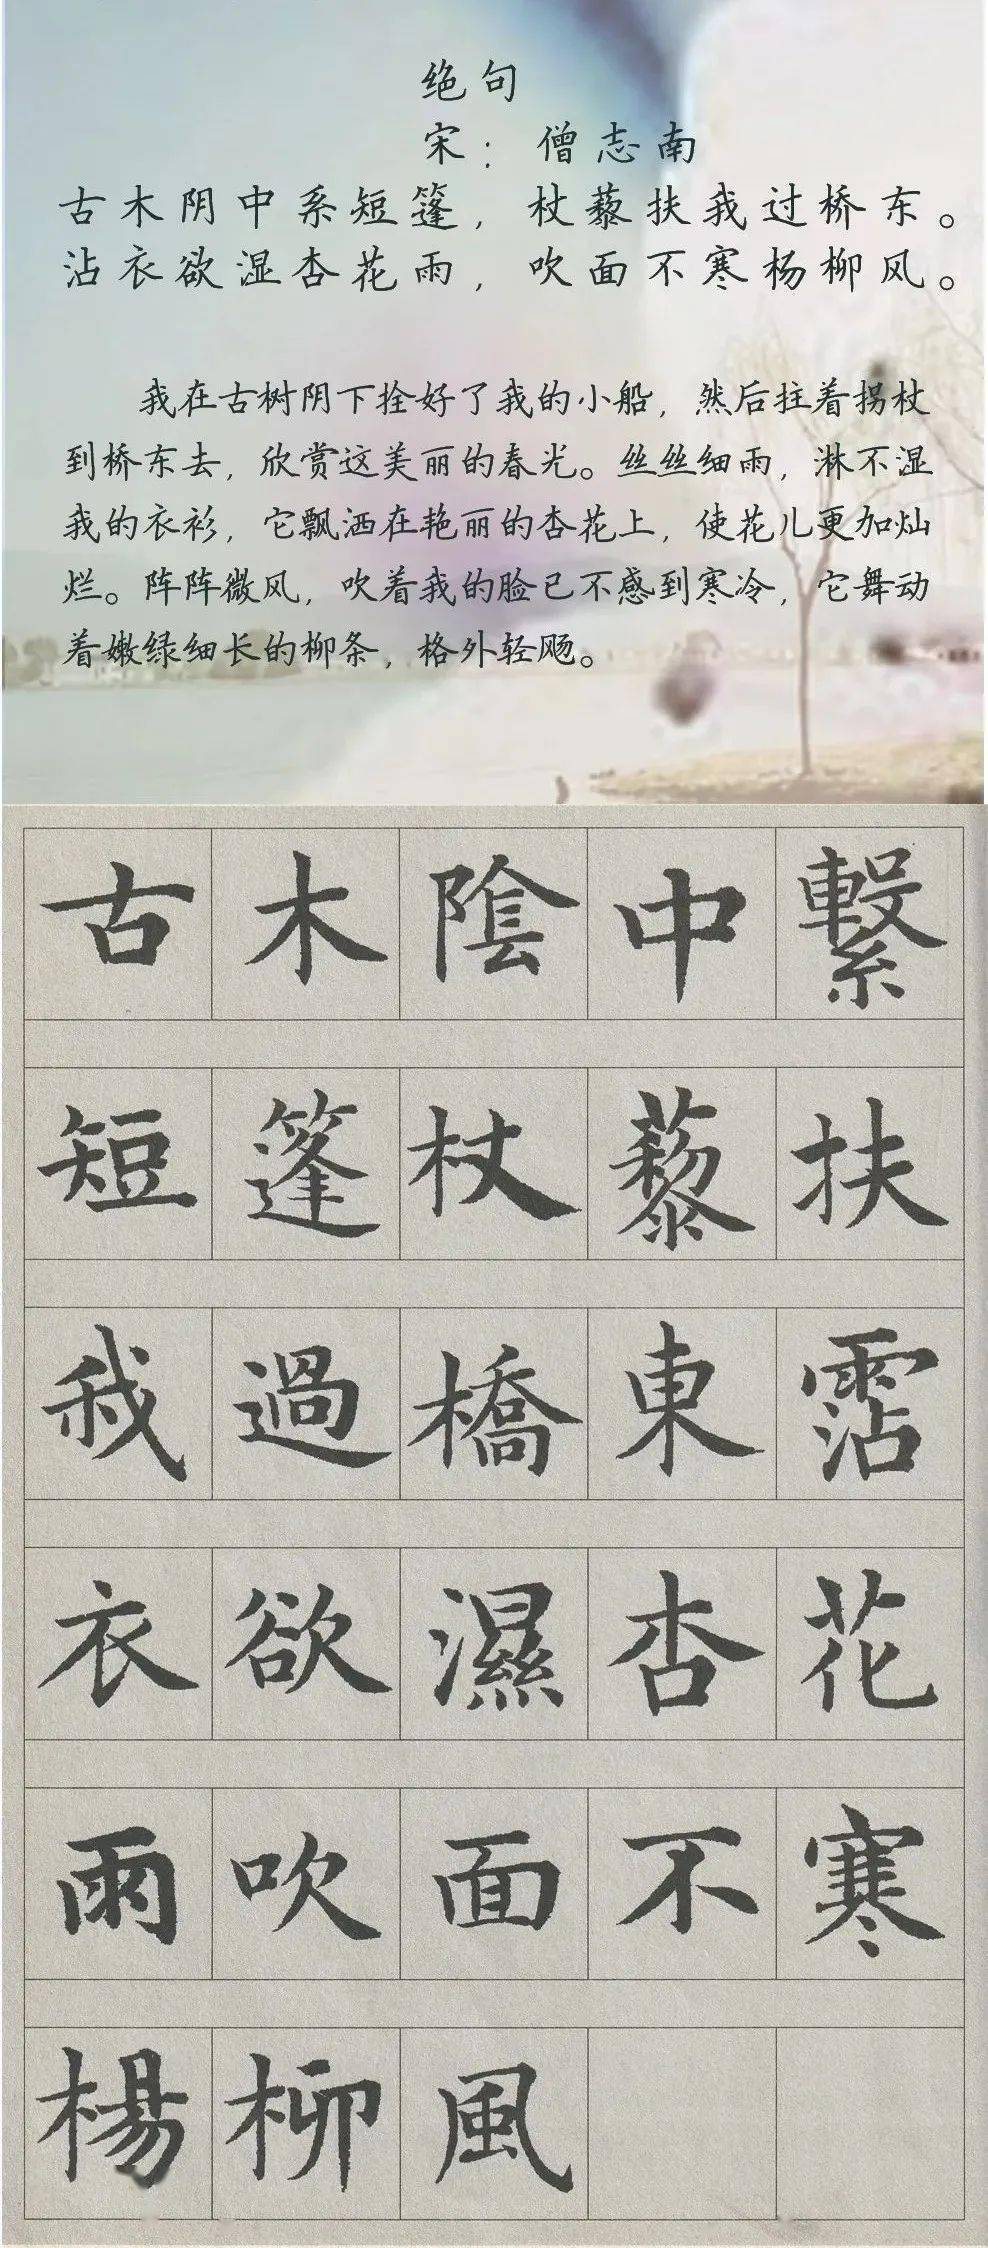 绝句
宋：僧志南
古木阴中系短篷，杖藜扶我过桥东。
沾衣欲湿杏花雨，吹面不寒杨柳风。
我在古树阴下拴好了我的小船，然后拄着拐杖
到桥东去，欣赏这美丽的春光。丝丝细雨，淋不湿
我的衣衫，它飘洒在艳丽的杏花上，使花儿更加灿
烂。阵阵微风，吹着我的脸已不感到寒冷，它舞动
着嫩绿细长的柳条，格外轻飏。
古木陰中繫
短篷杖藜扶
我過橋東霑
衣欲濕杏花
雨吹面不寒
楊柳風